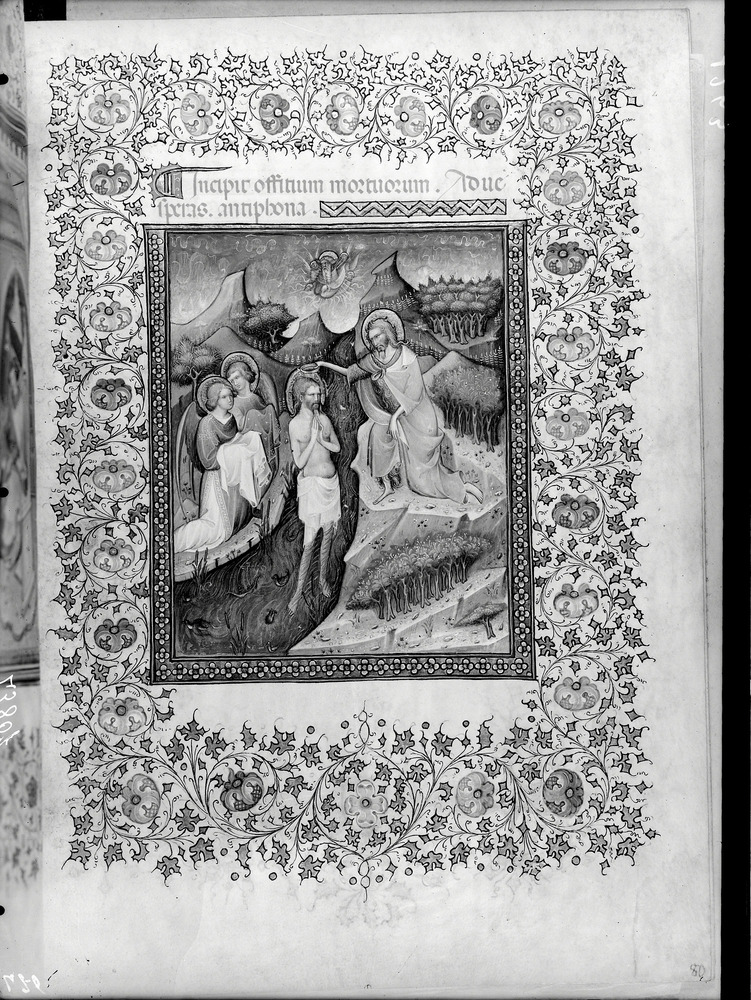 Incipit offitium mortuorum. Ad ue
speras. antiphona.
80